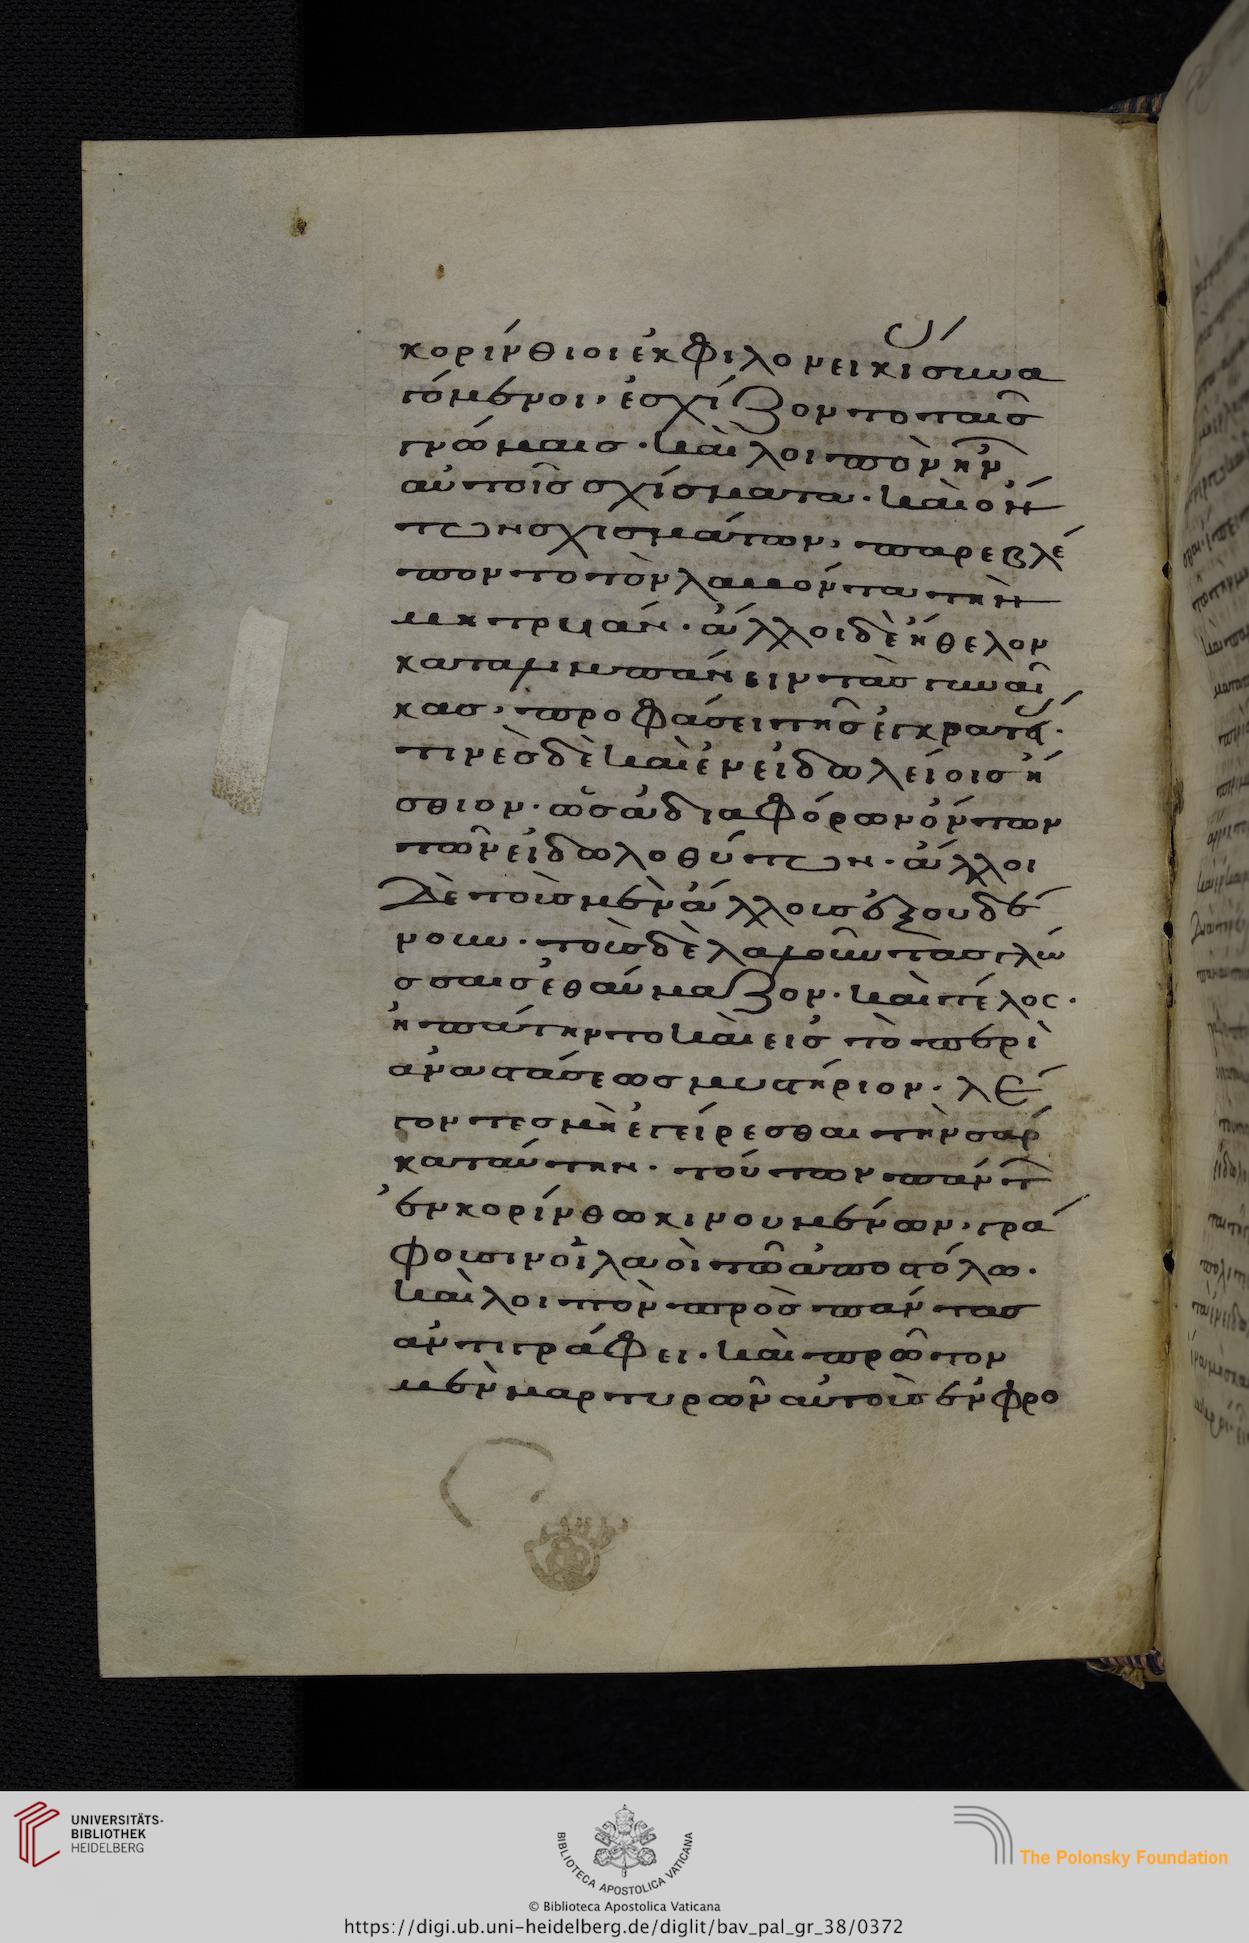 κορίνθιοι ἐκ φιλονεικίασ συνα
γόμενοι, ἐσχίζοντο ταῖσ
γνώμαισ· καὶ λοιπὸν ἦν
αὐτοῖσ σχίσματα· καὶ ὄν
των σχισμάτων, παρεβλέ
ποντο τὸν λαβόντα τὴν
μητρυιάν· ἄλλοι δὲ ἤθελον
καταλιμπάνειν τὰσ γυναῖ
κασ, προφάσει τῆσ ἐγκρατείασ·
τινὲσ δὲ καὶ ἐν εἰδωλείοισ ἤ
σθιον· ὡσ ἀδιαφόρων ὄντων
τῶν εἰδωλοθύτων· ἄλλοι
δὲ τοὺσ μὲν ἄλλουσ ἐξουδέ
νουν· τοὺσ δὲ λαλοῦντασ γλώ
σσαισ ἐθαύμαζον· καὶ τέλος·
ἠπάτηντο καὶ εἰσ τὸ περὶ
ἀναστάσεωσ μυστήριον· λέ
γοντεσ μὴ ἐγείρεσθαι τὴν σάρ
κα ταύτην· τούτων πάντων
ἐν κορίνθω κινουμένων, γρά
φουσιν οἱ λαοὶ τῶ ἀποστόλω·
καὶ λοιπὸν πρὸσ πάντασ
ἀντιγράφει· καὶ πρῶτον
μὲν μαρτυρῶν αὐτοὺσ ἐν φρο
UNIVERSITÄTS-
BIBLIOTHEK
HEIDELBERG
BIBLIOTECA APOSTOLICA VATICANA
The Polonsky Foundation
© Biblioteca Apostolica Vaticana
https://digi.ub.uni-heidelberg.de/diglit/bav_pal_gr_38/0372